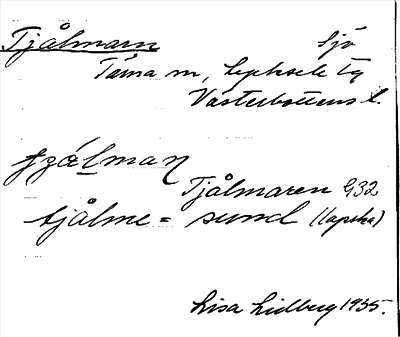 Tjålmarn sjö
Tärna sn, Lycksele tg
Västerbottens l.
Tjålmaren G32
tjålme = sund (lapska)
Lisa Lidberg 1935.